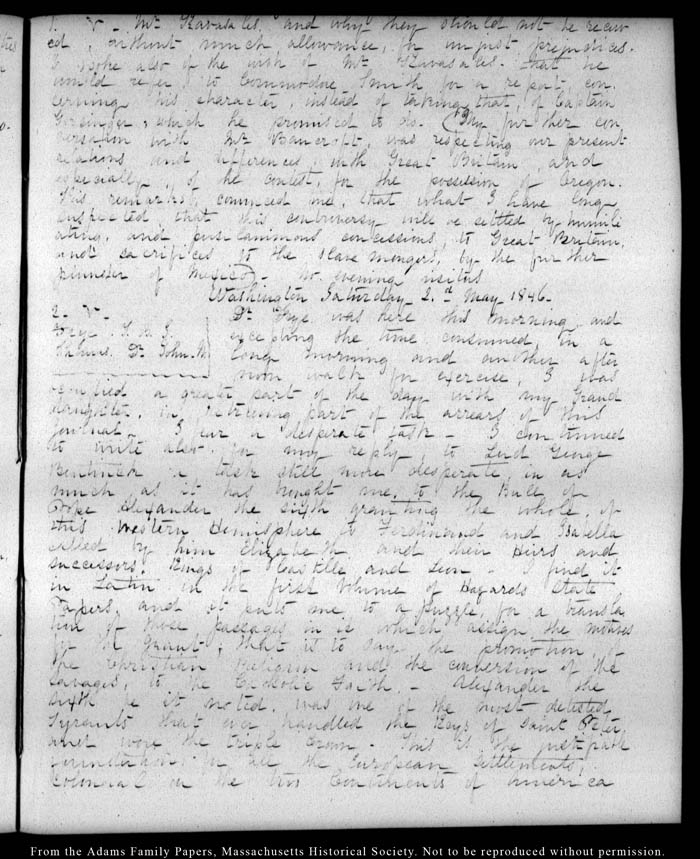 1. V. Mr Rivasales. and why they should not be receiv
ed, without much allowance, for unjust prejudices.
I spoke also of the wish of Mr Rivasales. that he
would refer, to Commodore Smith for a report, con
cerning his character, instead of taking that, of Captain
which he promised to do. My further con
versation with Mr Bancroft, was respecting our present
relations and differences, with Great Britain, and
especially, of the contest, for the possession of Oregon.
His remarks, convinced me, that what I have long
suspected, that this controversy will be settled by humili
ating, and pusillanimous concessions, to Great Britain,
and sacrifices to the slave mongers, by the further
plunder of Mexico. No evening visitors
Washington Saturday 2.d May 1846.
2. V.
Frye. T. H. G.
Thomas. Dr John. M
Dr Frye was here this morning and
excepting the time consumed, in a
long morning and another after
noon walk for exercise, I was
occupied a greater part of the day with my Grand
daughter, in retrieving part of the arrears of this
journal. I fear a desperate task. I continued
to write also, for my reply, to Lord George
Bentinck a task still more desperate in as
much as it has brought me, to the Bull of
Pope Alexander the sixth granting the whole, of
this Western Hemisphere to Ferdinand and Isabella
called by him Elizabeth and their Heirs and
successors Kings of Castille and Leon. I find it
in Latin in the first volume of Hazards State
Papers, and it puts me, to a puzzle, for a transla
tion of those passages in it which assign the motives
for the grant; that is to say the promotion, of
the Christian Religion and the conversion of the
savages, to the Catholic Faith. Alexander the
sixth be it noted, was one of the most detested
Tyrants that ever handled the Keys of Saint Peter
and wore the triple crown. This is the
foundation, for all the European Settlements,
Colonial on the two Continents of America
From the Adams Family Papers, Massachusetts Historical Society. Not to be reproduced without permission.